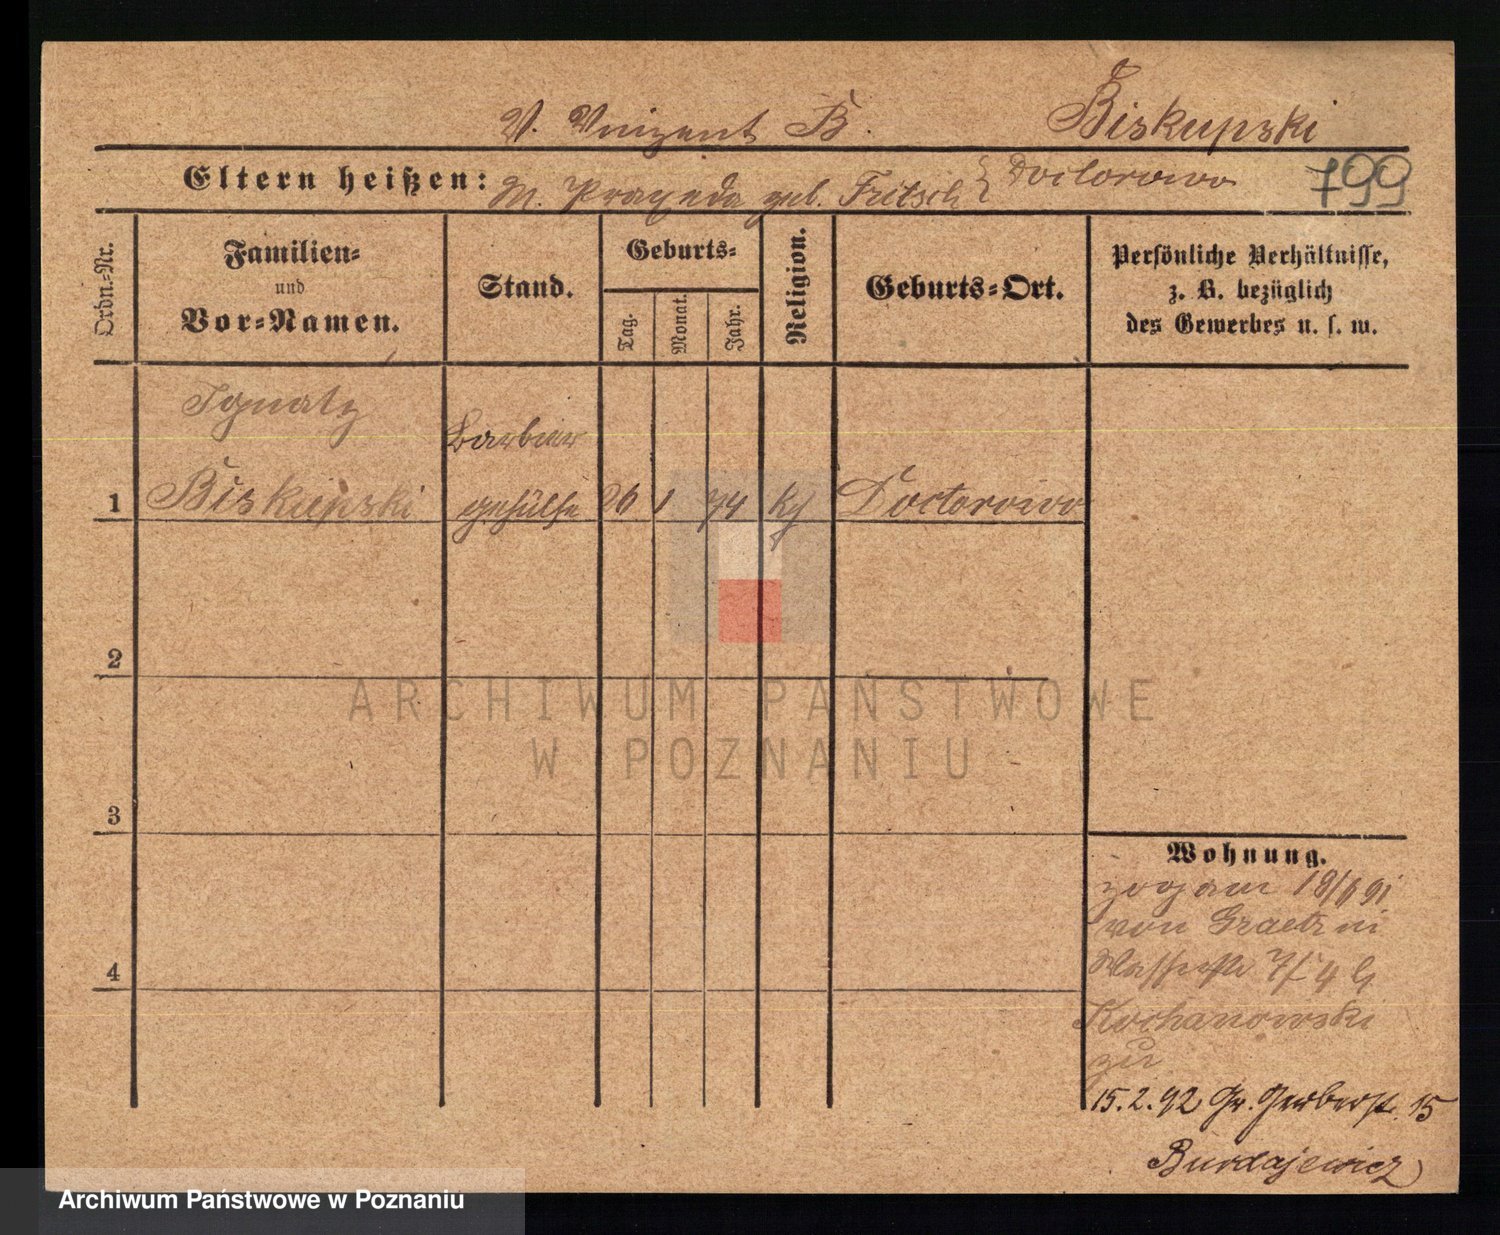 V. Vinzent B. Biskupski
Eltern heißen: M. Praxeda geb. Fritsch } Doctorowo 799
Ordn.-Nr.
Familien-
und
Vor-Namen.
Stand.
Geburts-
Tag.
Monat.
Jahr.
Religion.
Geburts-Ort.
Persönliche Verhältnisse,
z. B. bezüglich
des Gewerbes u. s. w.
Ignatz
Barbier
1 Biskupski gehülfe 26 1 74 Doctorowo
2
3
4
Wohnung.
zog am 18/6 91
von Graetz in
7/
Kochanowski
zu
15.2.92 Gr. Gerberstr. 15
Burdajewicz
ARCHIWUM PAŃSTWOWE
W POZNANIU
Archiwum Państwowe w Poznaniu